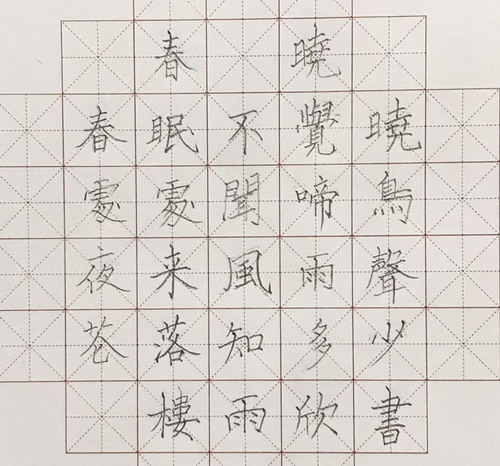 春 曉
春眠不覺曉
處處聞啼鳥
夜来風雨聲
花落知多少
樓雨欣書